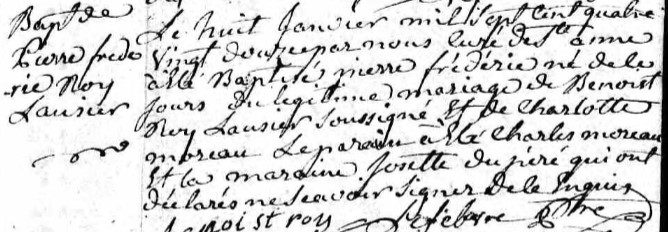 Bapt de
Pierre frede
rie Roy
Lausier
Le huit Janvier mil Sept Cent quatre
vingt douze par nous Curé de Ste anne
a été Baptisé pierre fréderic né de le
jours du legitime mariage de Benoist
Roy Lausier soussigné, Et de Charlotte
moreau Le parain a été Charles moreau
Et la maraine Josette Dupéré qui ont
déclarés ne scavoir signer de le Enquis
Benoist roy Lefebvre Ptre